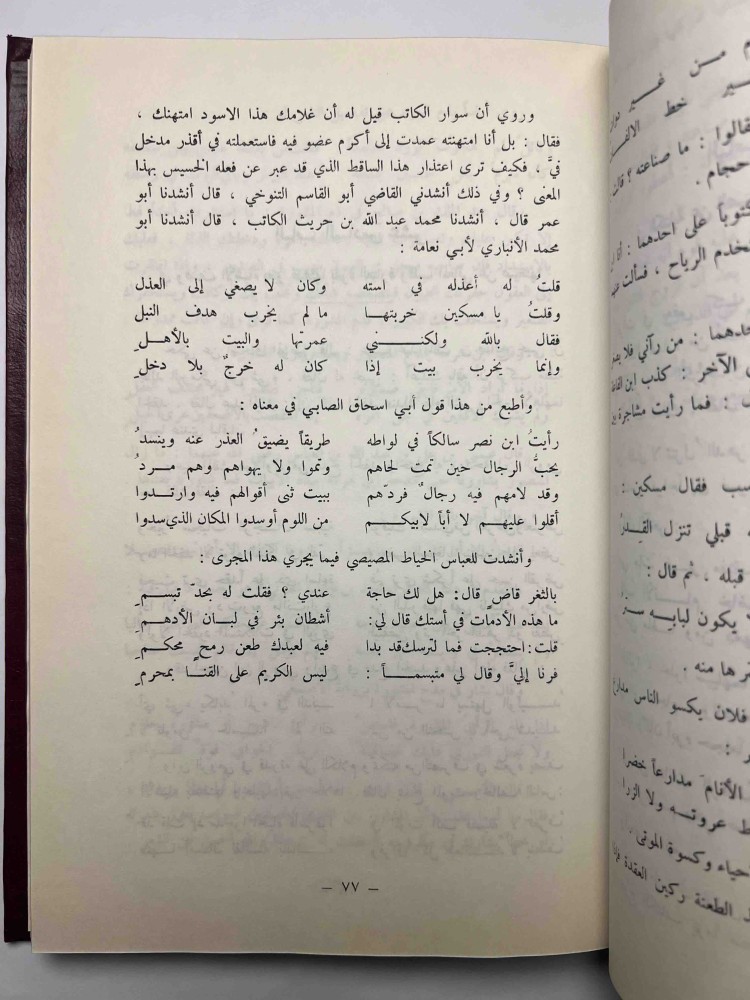 وروي أن سوار الكاتب قيل له أن غلامك هذا الاسود امتهنك ،
فقال : بل أنا امتهنته عمدت إلى أكرم عضو فيه فاستعملته في أقذر مدخل
فيَّ ، فكيف ترى اعتذار هذا الساقط الذي قد عبر عن فعله الخسيس بهذا
المعنى ؟ وفي ذلك أنشدني القاضي أبو القاسم التنوخي ، قال أنشدنا أبو
عمر قال ، أنشدنا محمد عبد الله بن حريث الكاتب ، قال أنشدنا أبو
محمد الأنباري لأبي نعامة :
قلتُ له أعذله في استه وكان لا يصغي إلى العذل
وقلتُ يا مسكين خربتها ما لم يخرب هدف النبل
فقال بالله ولكنني عمرتها والبيت بالأهلِ
وإنما يخرب بيت إذا كان له خرجٌ بلا دخلِ
وأطبع من هذا قول أبي اسحاق الصابي في معناه :
رأيتُ ابن نصر سالكاً في لواطه طريقاً يضيقُ العذر عنه وينسدُ
يحبَّ الرجال حين تمت لحاهم وتموا ولا يهواهم وهم مردُ
وقد لامهم فيه رجالٌ فردّهم ببيت ثنى أقوالهم فيه وارتدوا
أقلوا عليهم لا أباً لابيكم من اللوم أوسدوا المكان الذي سدوا
وأنشدت للعباس الخياط المصيصي فيما يجري هذا المجرى :
بالثغر قاضٍ قال: هل لك حاجة عندي ؟ فقلت له بحدّ تبسمِ
ما هذه الأدمات في أستك قال لي: أشطان بئر في لبان الأدهمِ
قلت: احتججت فما لترسك قد بدا فيه لعبدك طعن رمحٍ محكمِ
فرنا إليَّ وقال لي متبسماً : ليس الكريم على القنا بمحرمِ
– ٧٧ –
من غير
خط
فقالوا : ما صناعته ؟
حجام .
على احدهما : أنا
الرياح ، فسألت
: من رآني فلا
الآخر : كذب ابن
: فما رأيت مشاجرة
فقال مسكين :
قبلي تنزل القدرُ
قبله ، ثم قال :
يكون لبابه
منه .
فلان يكسو الناس
الأنام مدارعاً خضرا
عروته ولا
وكسوة الموتى
الطعنة ركين العقدة